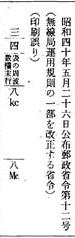 昭和四十年五月二十六日公布郵政省令第十二号
(無線局運用規則の一部を改正する省令)
(印刷誤り)
三四 表の周波数欄末行 八kc 八Mc